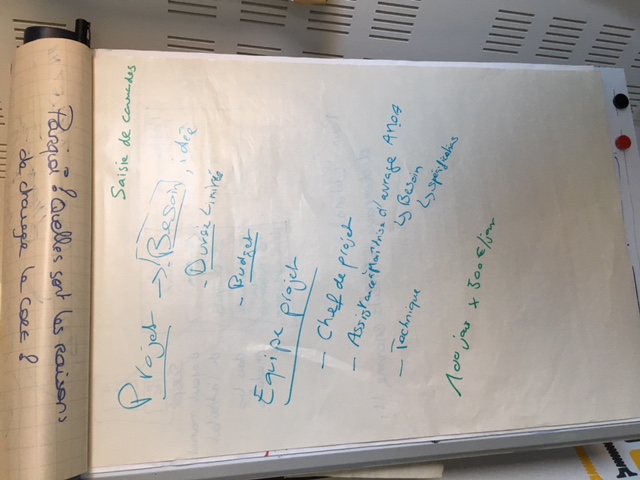 Pourquoi ? Quelles sont les raisons
de changer le core ?
Saisie de commandes
Projet → Besoin, idée
- Durée Limitée
- Budget
Equipe projet
- Chef de projet
- Assistance à Maîtrise d'ouvrage AMOA
↳ Besoin
↳ spécifications
- Technique
100 jour x 500€/jour